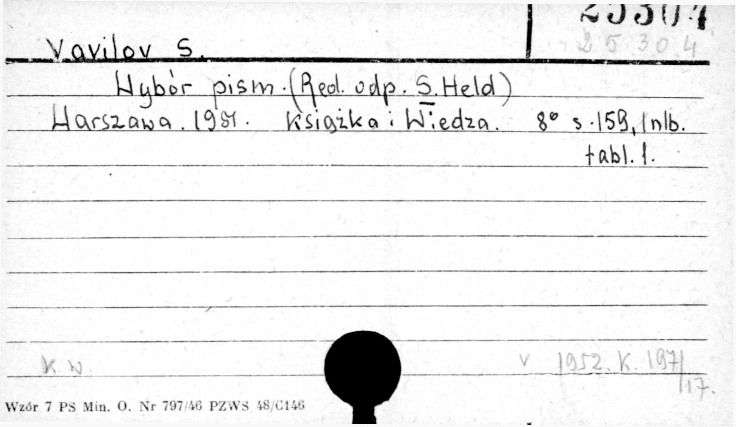 25304
25 304
Vavilov S.
Wybór pism. (Red. odp. S. Held)
Warszawa. 1951. Książka i Wiedza. 8° s. 159, 1 nlb.
tabl. 1.
K. W. v 1952. K. 197/
/17.
Wzór 7 PS Min. O. Nr 797/46 PZWS 48/C146